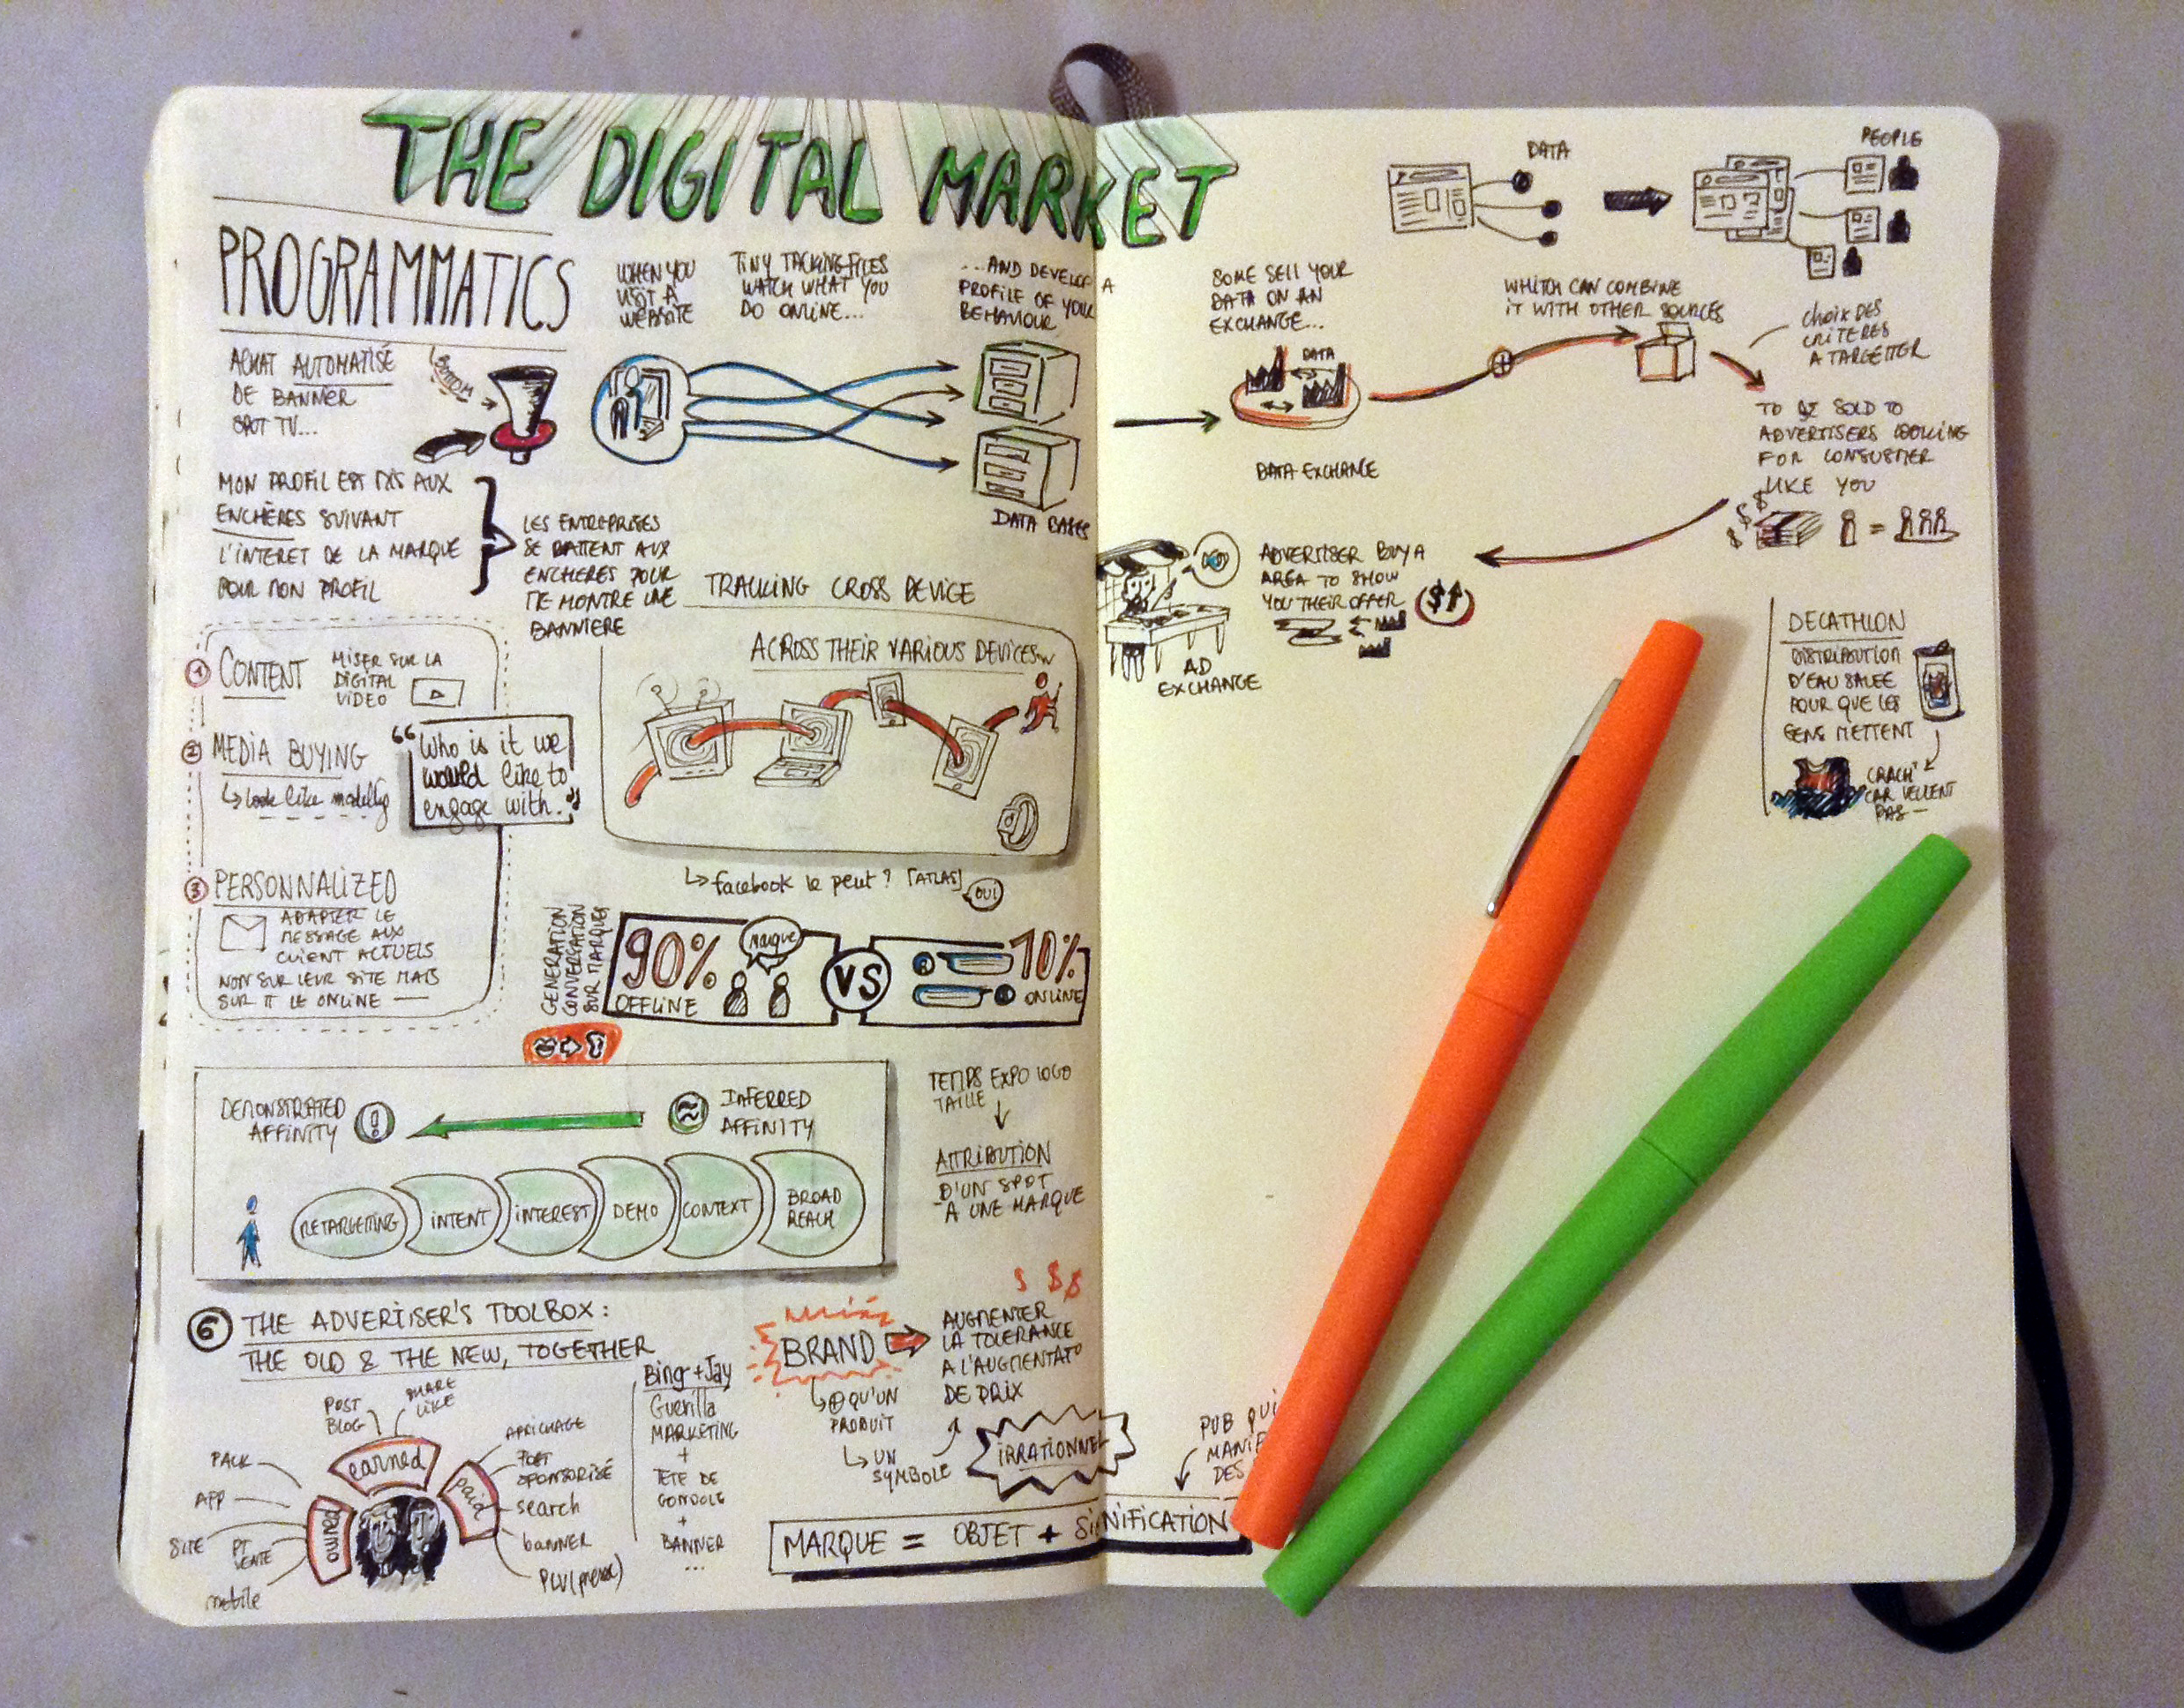 THE DIGITAL MARKET
PROGRAMMATICS
ACHAT AUTOMATISÉ
DE BANNER
SPOT TV...
BOTTOM
MON PROFIL EST MIS AUX
ENCHÈRES SUIVANT
L'INTERET DE LA MARQUE
POUR MON PROFIL
LES ENTREPRISES
SE BATTENT AUX
ENCHERES POUR
ME MONTRE UNE
BANNIERE
WHEN YOU
VISIT A
WEBSITE
TINY TACKING FILES
WATCH WHAT YOU
DO ONLINE...
...AND DEVELOP A
PROFILE OF YOUR
BEHAVIOUR
DATA BASES
SOME SELL YOUR
DATA ON AN
EXCHANGE...
DATA
DATA EXCHANGE
DATA
PEOPLE
WHITCH CAN COMBINE
IT WITH OTHER SOURCES
CHOIX DES
CRITERES
A TARGETTER
TO BE SOLD TO
ADVERTISERS LOOKING
FOR CONSUMER
LIKE YOU
$ $ $
=
ADVERTISER BUY A
AREA TO SHOW
YOU THEIR OFFER
$
AD
EXCHANGE
DECATHLON
DISTRIBUTION
D'EAU SALEE
POUR QUE LES
GENS METTENT
CRACH'
CAR VEULENT
PAS
1 CONTENT
MISER SUR LA
DIGITAL
VIDEO
2 MEDIA BUYING
Look like modelling
"Who is it we
would like to
engage with."
3 PERSONNALIZED
ADAPTER LE
MESSAGE AUX
CLIENT ACTUELS
NON SUR LEUR SITE MAIS
SUR TT LE ONLINE
TRACKING CROSS DEVICE
ACROSS THEIR VARIOUS DEVICES
facebook le peut? [ATLAS]
OUI
GENERATION
CONVERSATION
SUR MARQUES
90%
OFFLINE
Marque
VS
10%
ONLINE
DEMONSTRATED
AFFINITY
!
≈
INFERRED
AFFINITY
RETARGETING
INTENT
INTEREST
DEMO
CONTEXT
BROAD
REACH
TEMPS EXPO LOGO
TAILLE
ATTRIBUTION
D'UN SPOT
A UNE MARQUE
6 THE ADVERTISER'S TOOLBOX:
THE OLD & THE NEW, TOGETHER
POST
BLOG
SHARE
LIKE
earned
PACK
APP
SITE
PT
VENTE
mobile
owned
paid
AFFICHAGE
POST
SPONSORISÉ
search
banner
PLV
Bing + Jay
Guerilla
MARKETING
+
TETE DE
GONDOLE
+
BANNER
...
BRAND
⊕ QU'UN
PRODUIT
UN
SYMBOLE
$ $$
AUGMENTER
LA TOLERANCE
A L'AUGMENTAT°
DE PRIX
IRRATIONNEL
PUB QUI
DES
MARQUE = OBJET + SIGNIFICATION